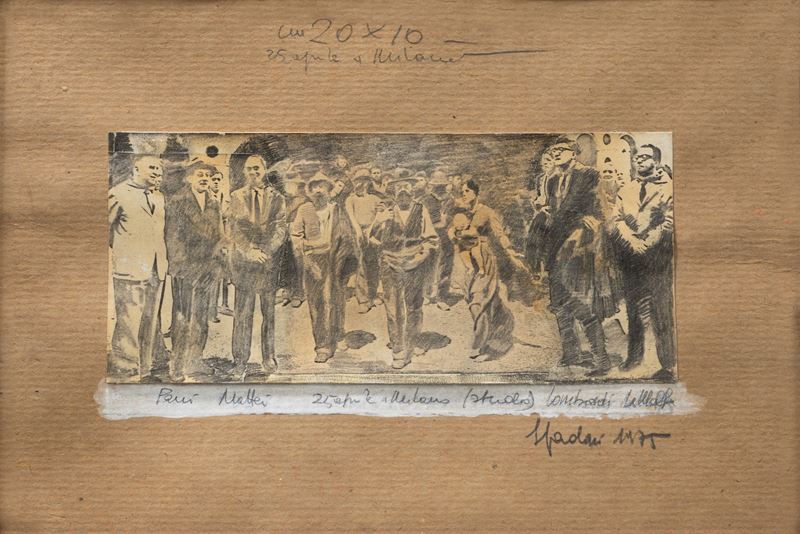 cm 20 x 10
25 aprile a Milano
Parri Mattei 25 aprile a Milano (studio) Lombardi La Malfa
Spadari 1975